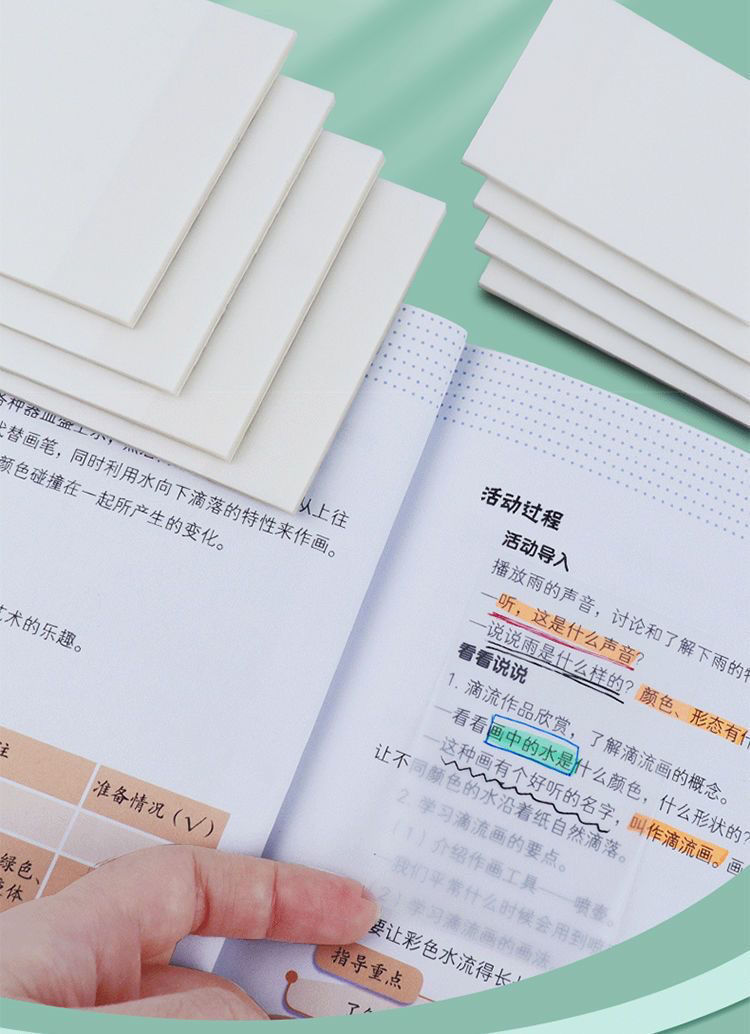 代替画笔，同时利用水向下滴落的特性来作画。
从上往
颜色碰撞在一起所产生的变化。
艺术的乐趣。
准备情况（√）
绿色、
活动过程
活动导入
播放雨的声音，讨论和了解下雨的特
—听，这是什么声音？
—说说雨是什么样的？颜色、形态有什
看看说说
1. 滴流作品欣赏，了解滴流画的概念。
—看看画中的水是什么颜色，什么形状的？
—这种画有个好听的名字，叫作滴流画。画
让不同颜色的水沿着纸自然滴落。
2. 学习滴流画的要点。
（1）介绍作画工具——喷壶。
—我们平常什么时候会用到喷
（2）学习滴流画的画法
要让彩色水流得长
指导重点